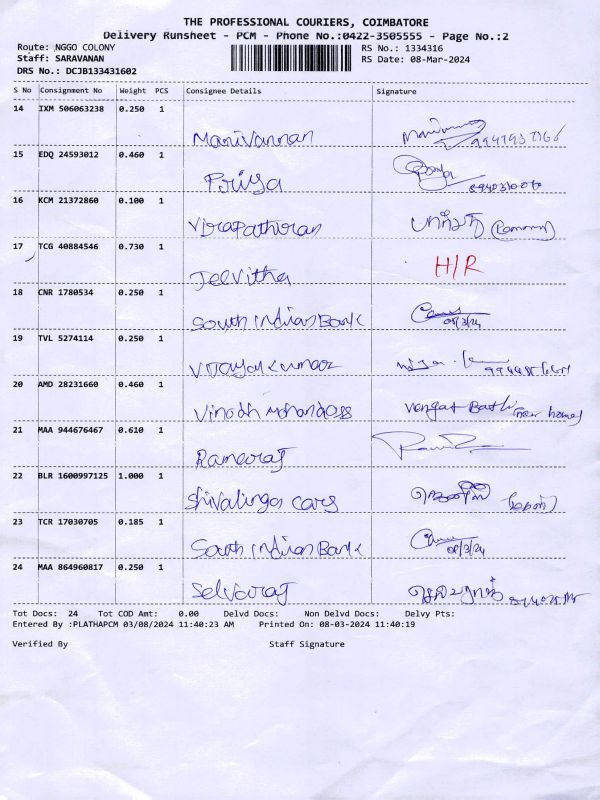 THE PROFESSIONAL COURIERS, COIMBATORE
Delivery Runsheet - PCM - Phone No.:0422-3505555 - Page No.:2
Route: NGGO COLONY RS No.: 1334316
Staff: SARAVANAN RS Date: 08-Mar-2024
DRS No.: DCJB133431602
S No Consignment No Weight PCS Consignee Details Signature
14 IXM 506063238 0.250 1
Manivannan
15 EDQ 24593012 0.460 1
Priya
16 KCM 21372860 0.100 1
Virapathiran
17 TCG 40884546 0.730 1
Jeevitha H/R
18 CNR 1780534 0.250 1
South Indian Bank 08/3/24
19 TVL 5274114 0.250 1
Vijayakumar
20 AMD 28231660 0.460 1
Vinodh Mohandoss
21 MAA 944676467 0.610 1
Rameoraj
22 BLR 1600997125 1.000 1
Shivalinga cars
23 TCR 17030705 0.185 1
South Indian Bank 08/3/24
24 MAA 864960817 0.250 1
Selvaraj
Tot Docs: 24 Tot COD Amt: 0.00 Delvd Docs: Non Delvd Docs: Delvy Pts:
Entered By :PLATHAPCM 03/08/2024 11:40:23 AM Printed On: 08-03-2024 11:40:19
Verified By Staff Signature